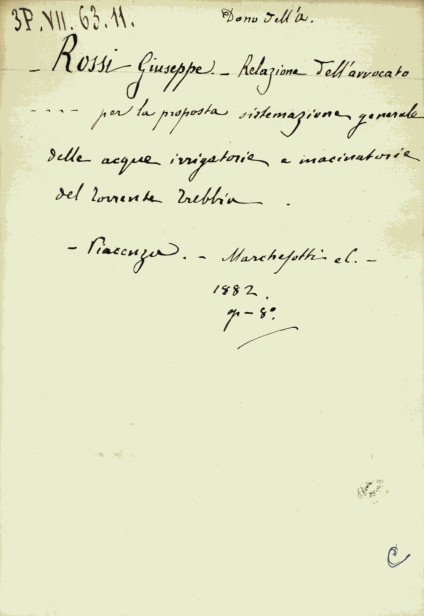 3P.VII.63.11.
Dono dell'A.
- Rossi Giuseppe. - Relazione dell'avvocato
---- per la proposta sistemazione generale
delle acque irrigatorie e macinatorie
del torrente Trebbia.
- Piacenza. - Marchesotti e C. -
1882.
- 8º.
C